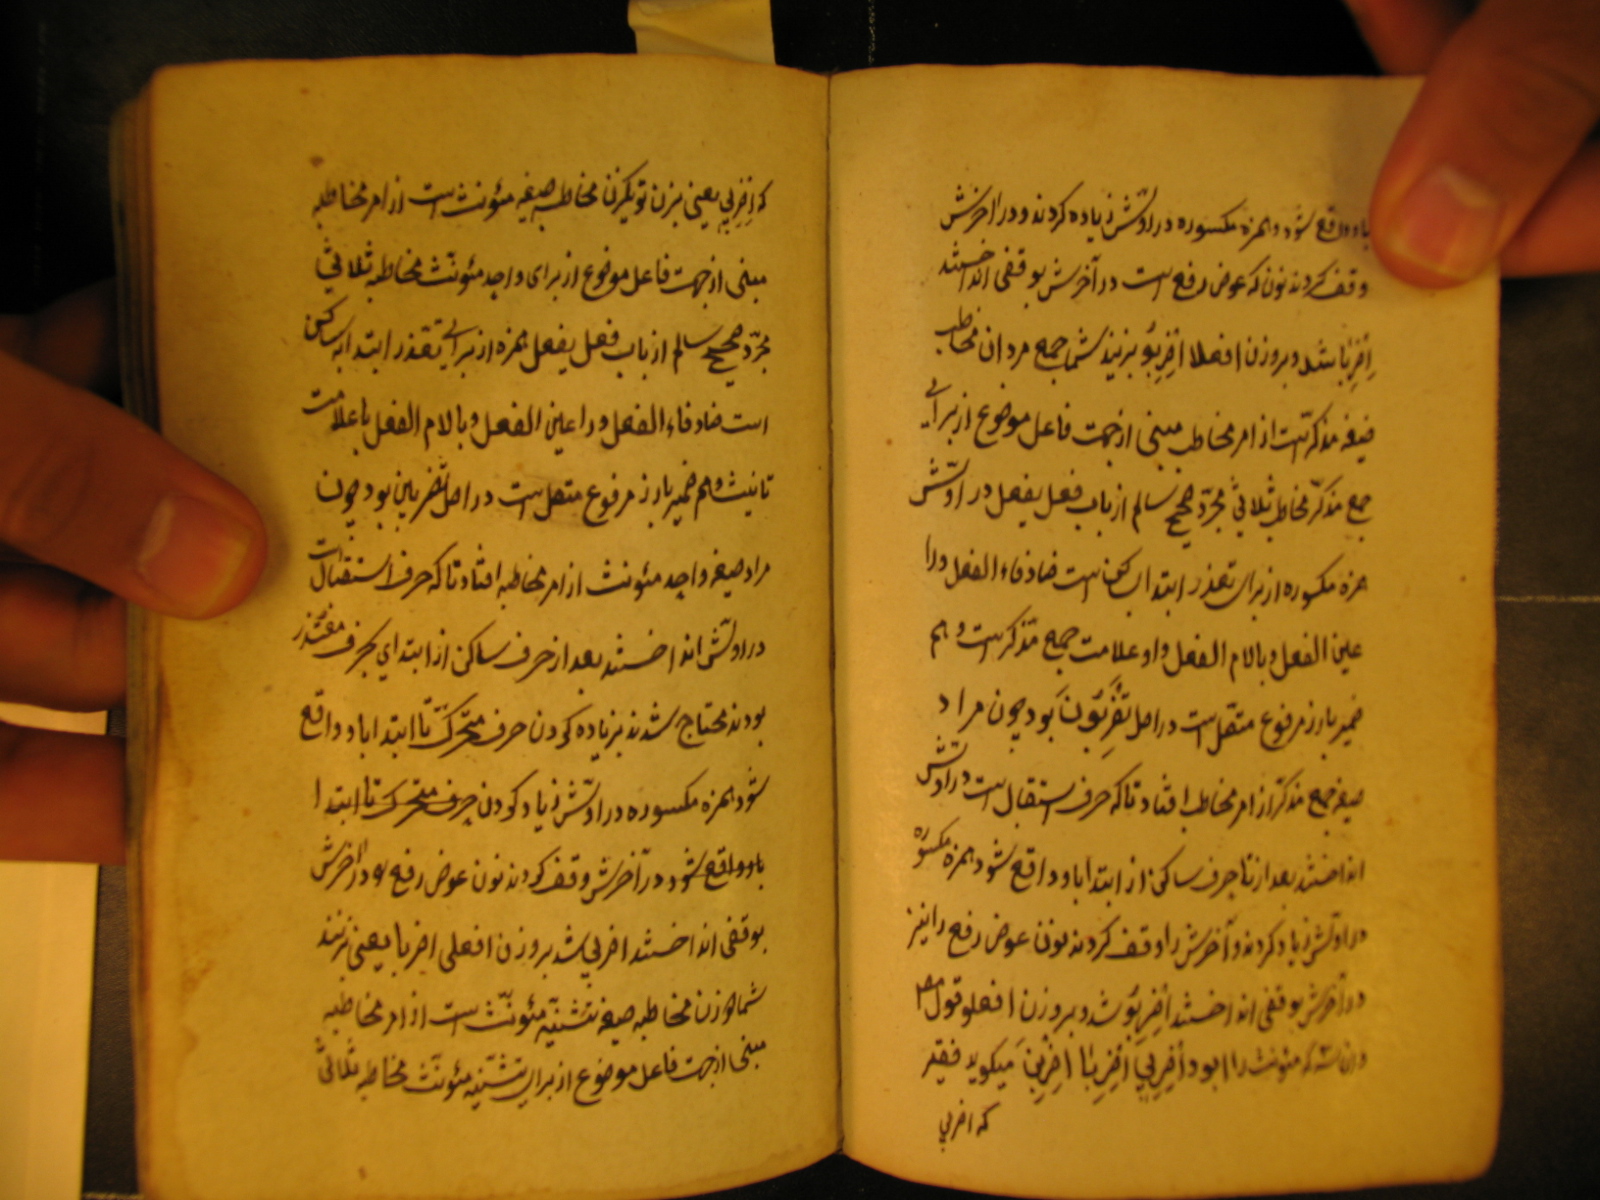 باو واقع شود و همزه مکسوره در اولش زیاده کردند و در اخرش
وقف کردند نون که عوض رفع است در آخرش بوقفی انداختند
اِضْرِبا شد و بروزن افعلا اضربوُ بزنید شما جمع مردان مخاطب
صیغه مذکر است از امر مخاطب مبنی از جهت فاعل موضوع از برای
جمع مذکر مخاطب ثلاثی مجرّد صحیح سالم از باب فعل یفعل در اوّلش
همزه مکسوره از برای تعذر ابتدا بساکن است ضاد فاء الفعل و را
عین الفعل و با لام الفعل و او علامت جمع مذکر است و هم
ضمیر بارز مرفوع متصل است در اصل تضربُونَ بود چون مراد
صیغه جمع مذکر از امر مخاطب افتاد تا که حرف استقبال است در اوّلش
انداختند بعد از تا حرف ساکن از ابتدا باو واقع شود همزه مکسوره
در اولش زیاد کردند و آخرش را وقف کردند نون عوض رفع را نیز
در آخرش بوقفی انداختند اضربُو شد و بروزن افعلو قول
مؤنث را بود اِضْرِبي اضربا اضربن میکوید فقیر
که اضربي
که اِضْرِبي یعنی بزن تو یکزن مخاطبه صیغه مئونث است از امر مخاطبه
مبنی از جهت فاعل موضوع از برای واحد مئونّث مخاطبه ثلاثی
مجرّد صحیح سالم از باب فعل یفعل همزه از برای تعّذر ابتدا بساکن
است ضاد فاء الفعل و را عین الفعل و با لام الفعل یا علامت
تانیث و هم ضمیر بارز مرفوع متصل است در اصل تضربین بود چون
مراد صیغه واحد مئونث از امر مخاطبه افتاد تا که حرف استقبال است
در اولّش انداختند بعد از حرف ساکن از ابتدای بحرف متعذر
بودند محتاج شدند بزیاده کودن حرف متحرّک تا ابتدا باو واقع
شود همزه مکسوره در اوّلش زیاد کودن حرف متحرک تا ابتدا
باو واقع شود در آخرش وقف کردند نون عوض رفع بود آخرش
بوقفی انداختند اضربي شد بروزن افعلی اضربا یعنی بزنید
شما دوزن مخاطبه صیغه تثنیّه مئونّث است از امر مخاطبه
مبنی از جهت فاعل موضوع از برای تثنیّه مئونّث مخاطبه ثلاثی